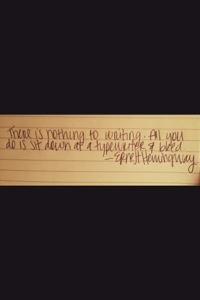 There is nothing to writing. All you
do is sit down at a typewriter & bleed
— Ernest Hemingway